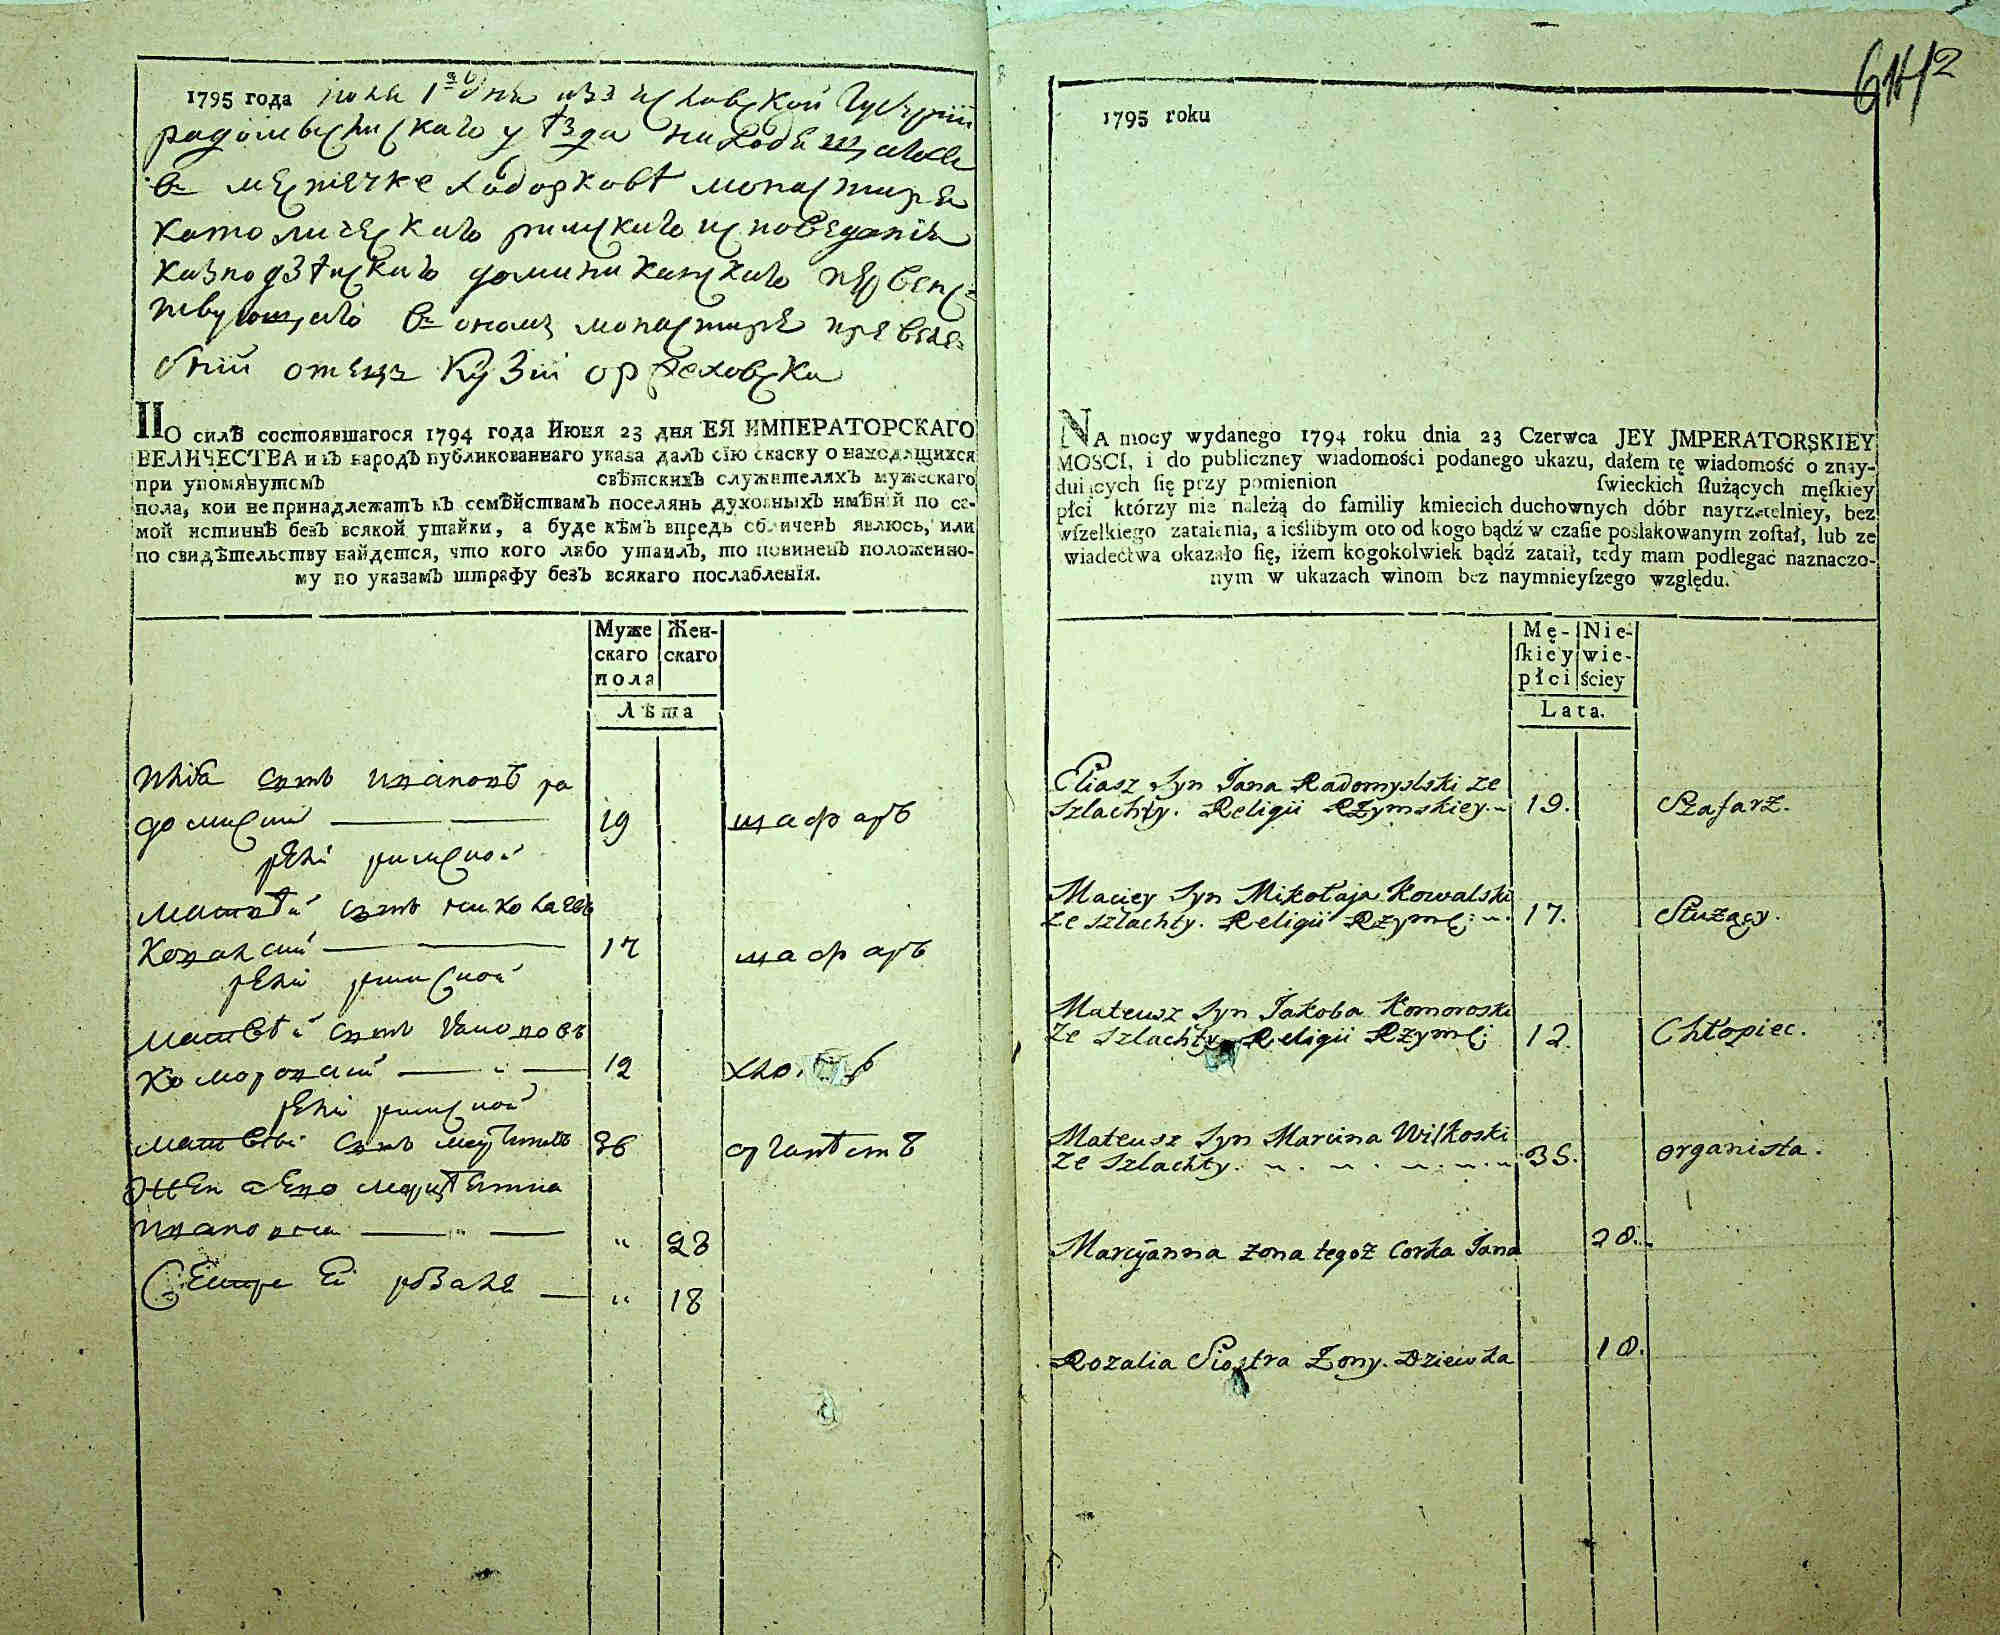 642
1795 года июля 1 дня изяславской губернїи
радомысльскаго уѣзда находящагося
въ местечке Ходорковѣ монастиря
католическаго римскаго исповеданїя
казнодѣйскаго доминиканскаго первенс
твующаго въ ономъ монастире превеле
бній отецъ
ПО силѣ состоявшагося 1794 года Июня 23 дня ЕЯ ИМПЕРАТОРСКАГО
ВЕЛИЧЕСТВА и въ народъ публикованнаго указа далъ сїю скаску о находящихся
при упомянутомъ свѣтскихъ служителяхъ мужескаго
пола, кои не принадлежатъ къ семѣйствамъ поселянъ духовныхъ имѣнїй по са-
мой истиннѣ безъ всякой утайки, а буде кѣмъ впредь обличенъ явлюсь, или
по свидѣтельству найдется, что кого либо утаилъ, то повиненъ положенно-
му по указамъ штрафу безъ всякаго послабленїя.
Муже Жен-
скаго скаго
пола
Лѣта
сынъ ра
домиский 19 шафаръ
римской
Матвѣй сынъ николаевъ
Ковалский 17 шафаръ
римской
Матвѣй сынъ
Коморовский 12
римской
Матвѣй сынъ 36 органѣстъ
Жена его
ивановна " 28
Сестра Ей " 18
1795 roku
NA mocy wydanego 1794 roku dnia 23 Czerwca JEY JMPERATORSKIEY
MOSCI, i do publiczney wiadomości podanego ukazu, dałem tę wiadomość o znay-
duiących ſię przy pomienion ſwieckich ſłużących męſkiey
płci którzy nie należą do familiy kmiecich duchownych dóbr nayrzetelniey, bez
wſzelkiego zataienia, a ieślibym oto od kogo bądź w czaſie poślakowanym zoſtał, lub ze
wiadectwa okazało ſię, iżem kogokolwiek bądź zataił, tedy mam podlegać naznaczo-
nym w ukazach winom bez naymnieyſzego względu.
Mę- Nie-
ſkiey wie-
płci ściey
Lata.
Eliasz Syn Jana Radomyslski ze
Szlachty. Religii Rzymskiey. 19. Szafarz.
Maciey Syn Mikołaja Kowalski
ze szlachty. Religii Rzyms: 17. Służący.
Mateusz Syn Jakoba Komoroski
ze szlachty Religii Rzyms: 12. Chłopiec.
Mateusz Syn Marcina Wilkoski
ze szlachty. 36. organista.
Marcyanna zona tegoż Corka Jana 28.
Rozalia Siostra Zony. Dziewka 18.